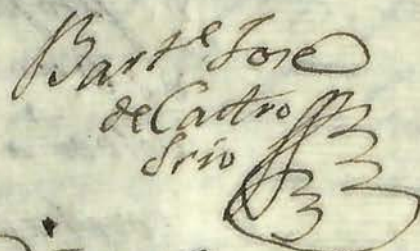 Bart.e Jose
de Castro
Srio